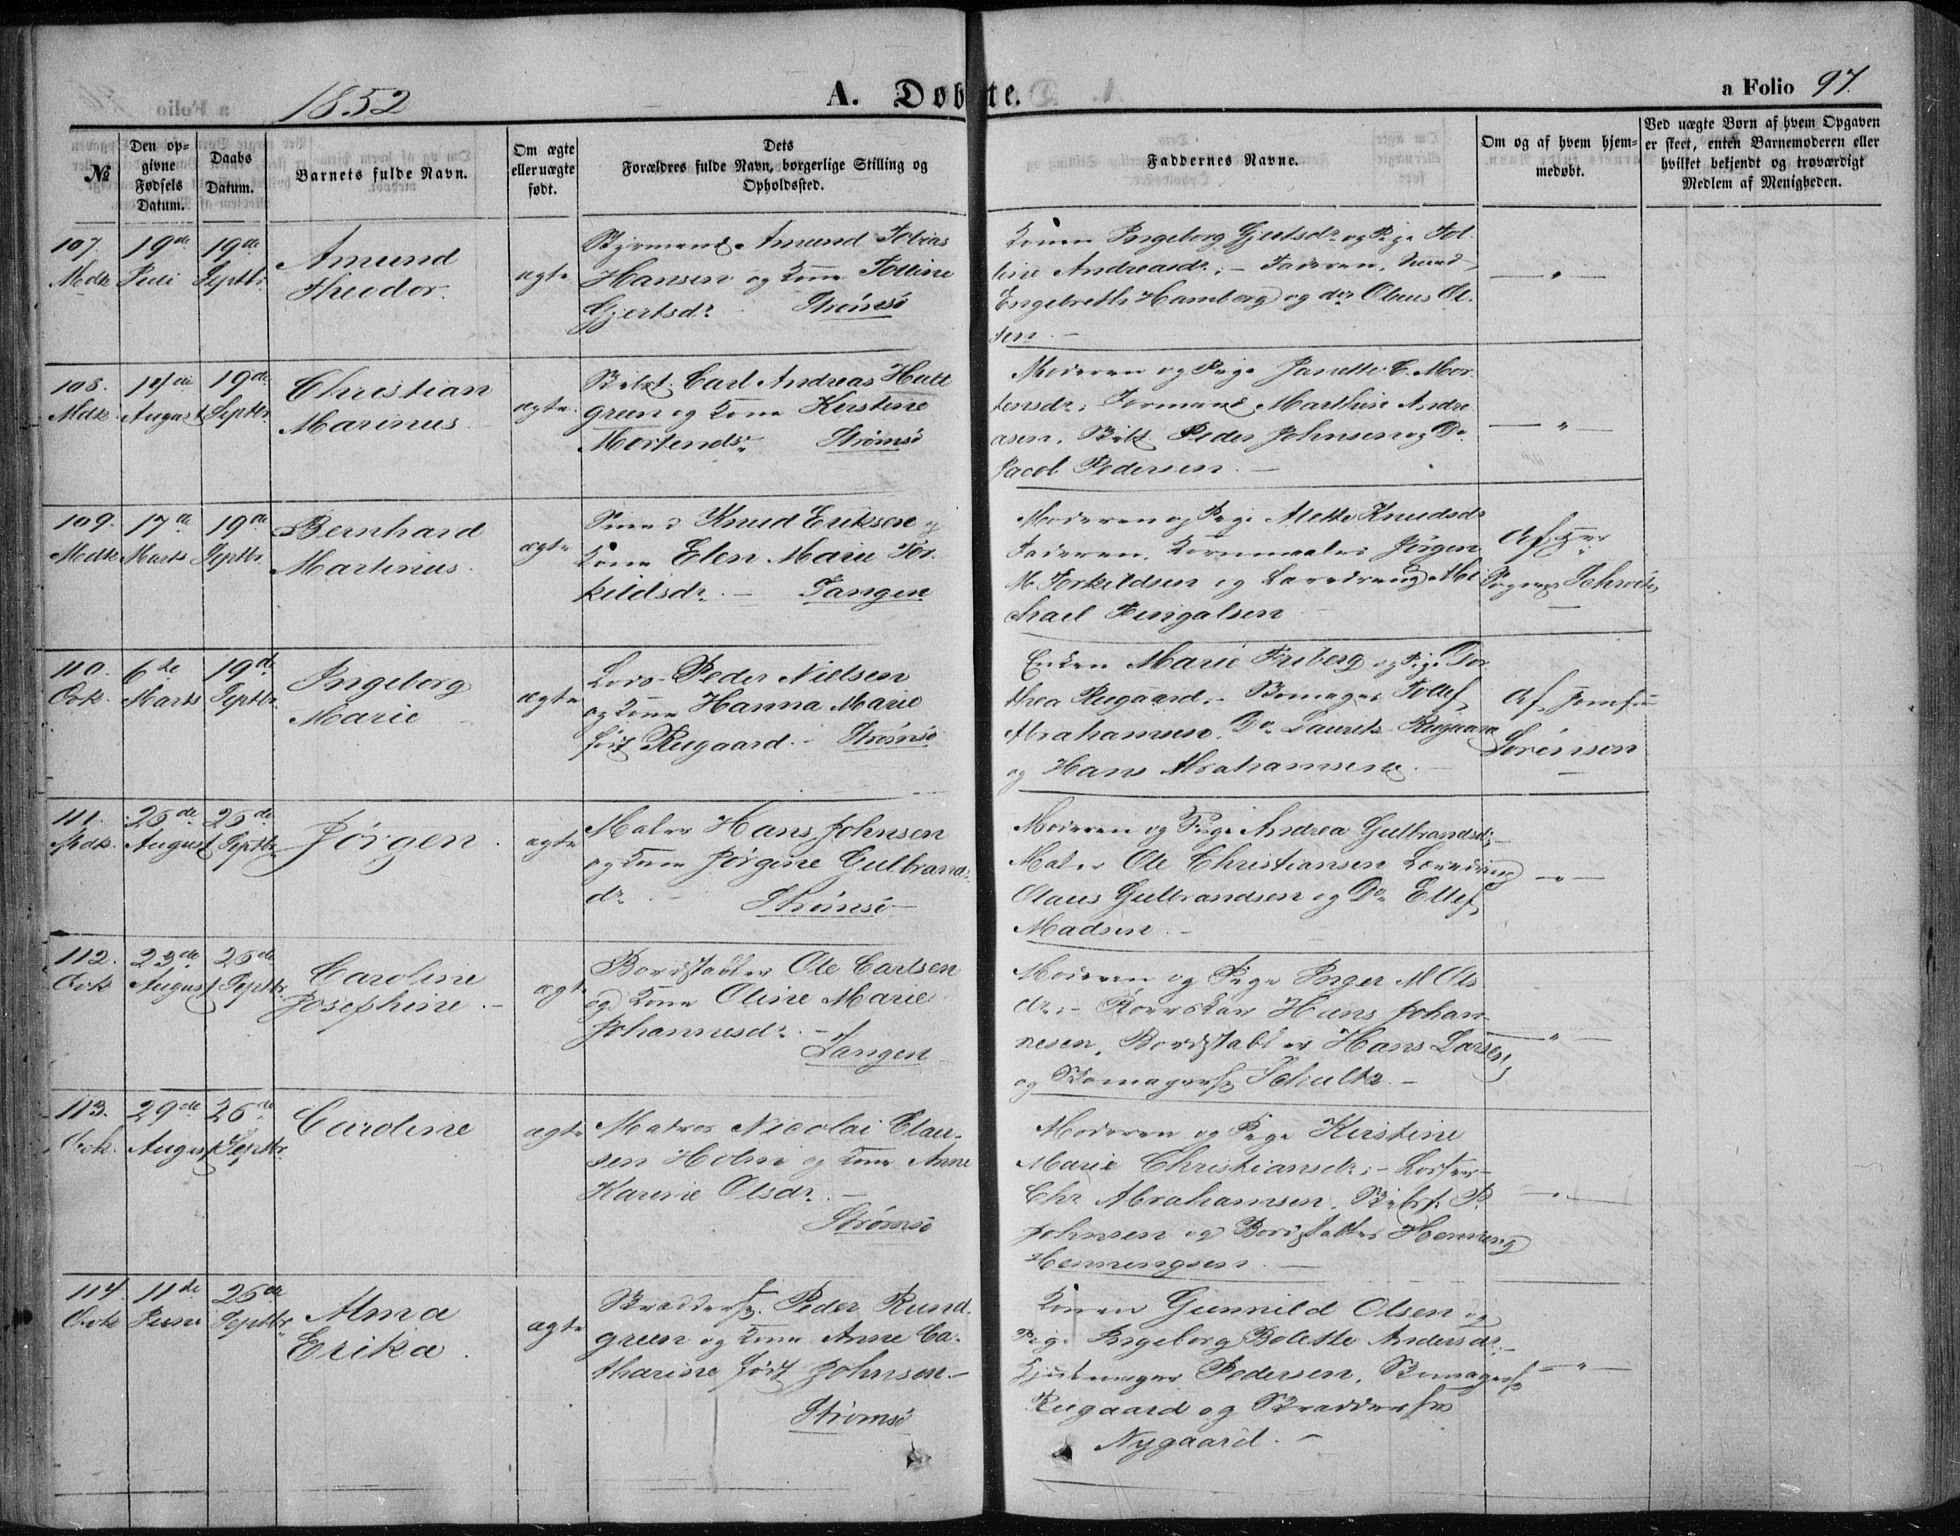 1852
A. Døbte.
a Folio 97.
№
Den op-
givne
Fødsels
Datum.
Daabs
Datum.
Barnets fulde Navn.
Om ægte
eller uægte
født.
Dets
Forældres fulde Navn, borgerlige Stilling og
Opholdssted.
Faddernes Navne.
Om og af hvem hjem-
medøbt.
Ved uægte Børn af hvem Opgaven
er skeet, enten Barnemoderen eller
hvilket bekjendt og troværdigt
Medlem af Menigheden.
107.
Mdk.
19de
Juli
19de
Septbr.
Amund
Theodor.
ægte
Styrmand Amund Tobias
Hansen og Kone Tolline
Gjertsdr. Strømsø
Konen Ingeborg Gjertsdr. og Pige Tol-
line Andreasdr. – Faderen,
Engebreth Hamborg og do Olaus Ol-
sen. –
— " —
108.
Mdk.
14de
August
19de
Septbr.
Christian
Marinus
ægte.
Carl Andreas Hall
green og Kone Kirstine
Mortensdr. Strømsø
Moderen og Pige Janette C. Mor-
tensdr; Formand Marthin Andre-
asen, Peder Johnsen og Do
Jacob Pedersen. –
— " —
109.
Mdk.
17de
Marts
19de
Septbr.
Bernhard
Martinus.
ægte
Knud Eriksen og
Kone Elen Marie Tor-
kildsdr. – Tangen
Moderen og Pige Alette Knudsdr
Faderen, Jørgen
M. Torkildsen og Læredreng Mi-
chael Fingalsen –
Af Hr
Schwartz
110.
Qvk.
6te
Marts
19de
Septbr.
Ingeborg
Marie
ægte
Lods Peder Nielsen
og Kone Hanna Marie
født Rugaard. – Strømsø
Enken Marie Friberg og Pige Do-
thea Rugaard. – Skomager Tollef
Abrahamsen, Do Lauritz Rugaard
og Hans Abrahamsen. –
Af Jomfru
Sørensen
111.
Mdk.
26de
August
26de
Septbr.
Jørgen.
ægte
Maler Hans Johnsen
og Kone Jørgine Gulbrands-
dr. – Strømsø
Moderen og Pige Andrea Gulbrandsdr; –
Maler Ole Christiansen Læredreng
Olaus Gulbrandsen og Do Ellef
Madsen. –
— " —
112.
Qvk
23de
August
26de
Septbr.
Caroline
Josephine. –
ægte
Bordstabler Ole Carlsen
og Kone Oline Marie
Johannesdr. –
Tangen
Moderen og Pige Inger M Ols-
dr; – Hans Johan-
nesen, Bordstabler Hans Larsen
og Skomagersv. Schultz. –
— " —
113.
Qvk.
29de
August
26de
Septbr.
Caroline
ægte
Matros Nicolai Clau-
sen Holm og Kone Anne
Karine Olsdr. –
Strømsø
Moderen og Pige Kirstine
Marie Christiansdr; –
Chr. Abrahamsen, P.
Johnsen og Bordstabler Henning
Henningsen. –
— " —
114.
Qvk
11te
Juni
26de
Septbr.
Alma
Erika.
ægte
Skræddersv. Peder Rund-
green og Kone Anne Ca-
tharine født Johnsen. –
Strømsø
Konen Gunnild Olsen og
Pige Ingeborg Bolette Andersdr. –
Pedersen, Skomagersv.
Rugaard og Skræddersv.
Nygaard. –
— " —